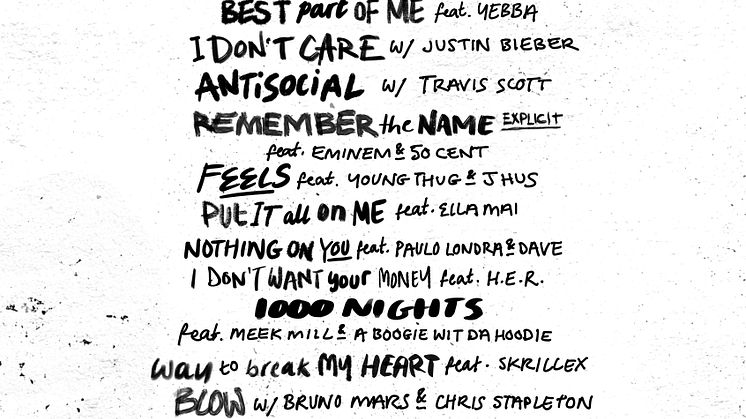 BEST part OF ME feat. YEBBA
I DON'T CARE w/ JUSTIN BIEBER
ANTiSOCIAL w/ TRAVIS SCOTT
REMEMBER the NAME EXPLICIT
feat. EMINEM & 50 CENT
FEELS feat. YOUNG THUG & J HUS
PUT IT all on ME feat. ELLA MAI
NOTHING ON YOU feat. PAULO LONDRA & DAVE
I DON'T WANT your MONEY feat. H.E.R.
1000 NIGHTS
feat. MEEK MILL & A BOOGIE WIT DA HOODIE
way to break MY HEART feat. SKRILLEX
BLOW w/ BRUNO MARS & CHRIS STAPLETON